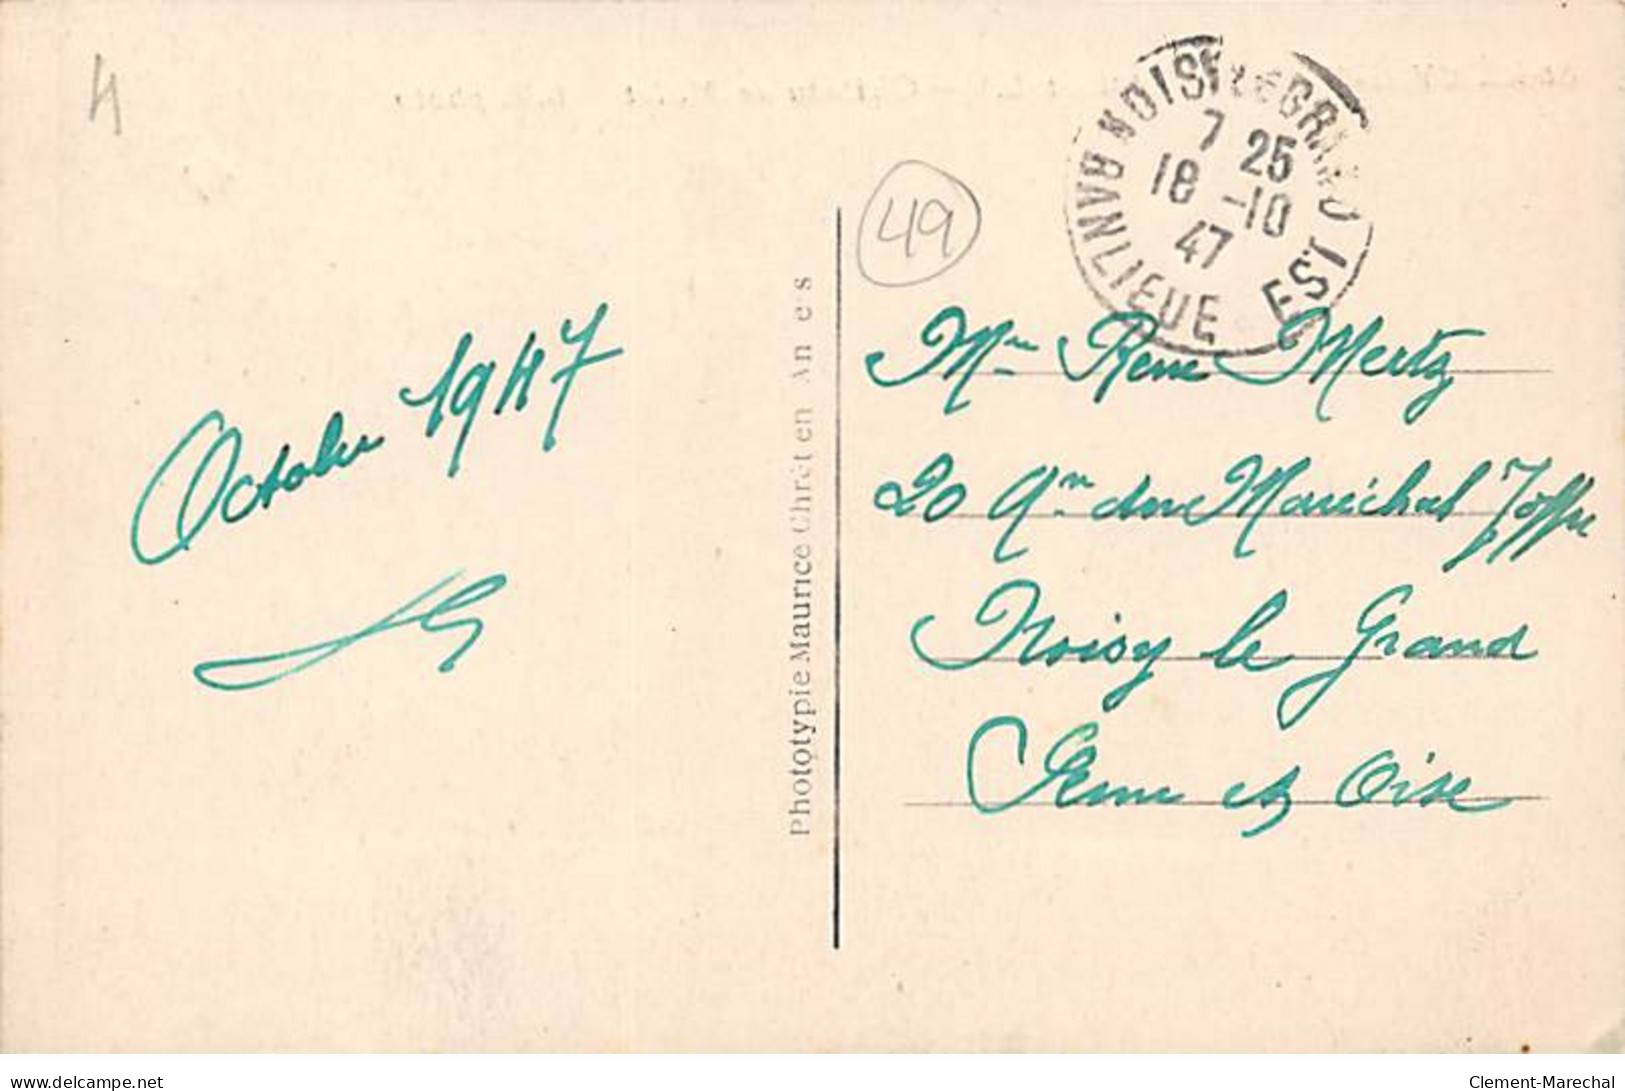 4
49
NOISY LE GRAND
7 25
18 -10
47
BANLIEUE EST
Octobre 1947
Phototypie Maurice Chrétien An e s
Mme Rene Mertz
20 Av du Maréchal Joffre
Noisy le Grand
Seine et Oise
delcampe.net
Clement-Marechal